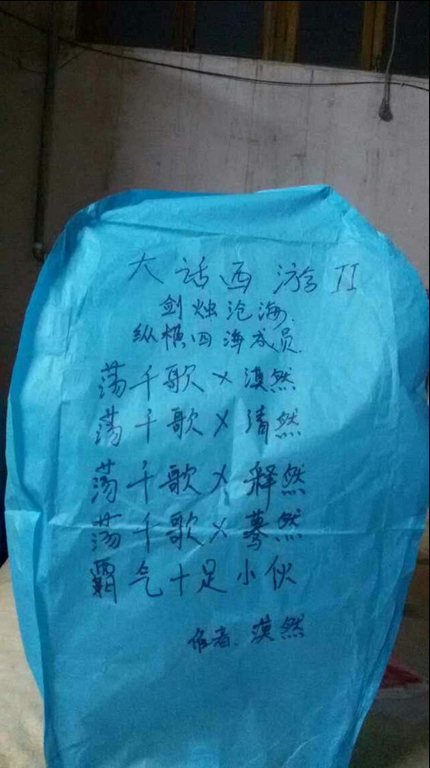 大话西游II
剑烛沧海
纵横四海成员
荡千歌×漠然
荡千歌×清然
荡千歌×释然
荡千歌×蓦然
霸气十足小伙
作者:漠然